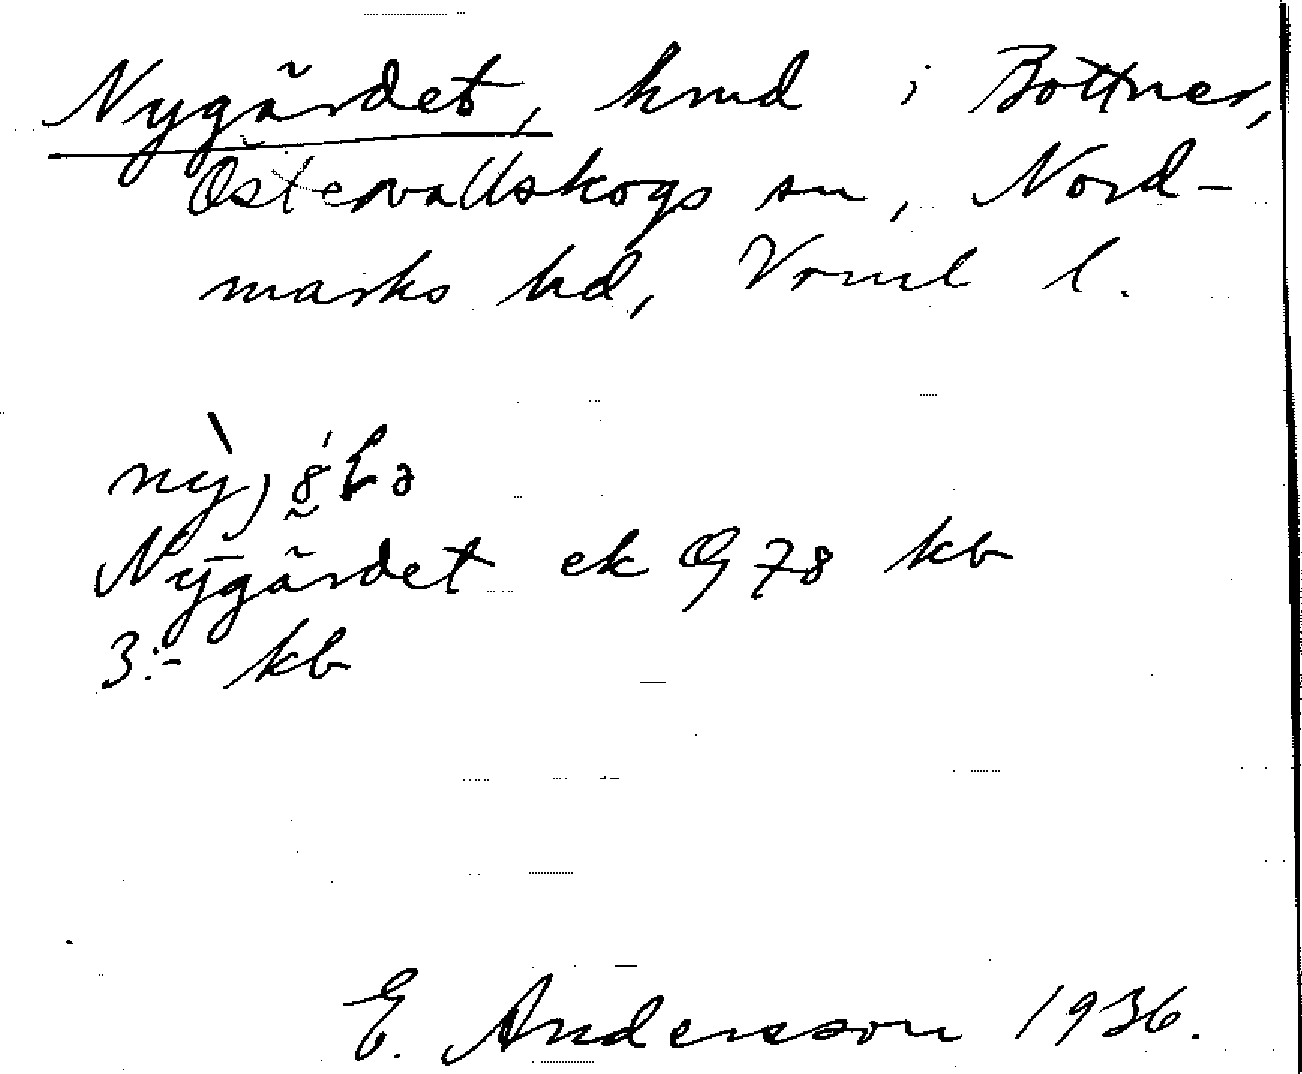 Nygårdet, hmd i Bottner,
Östervallskogs sn, Nord-
marks hd, Vrml l.
Nygårdet ek Q 78 kb
3:- kb
E. Andersson 1936.